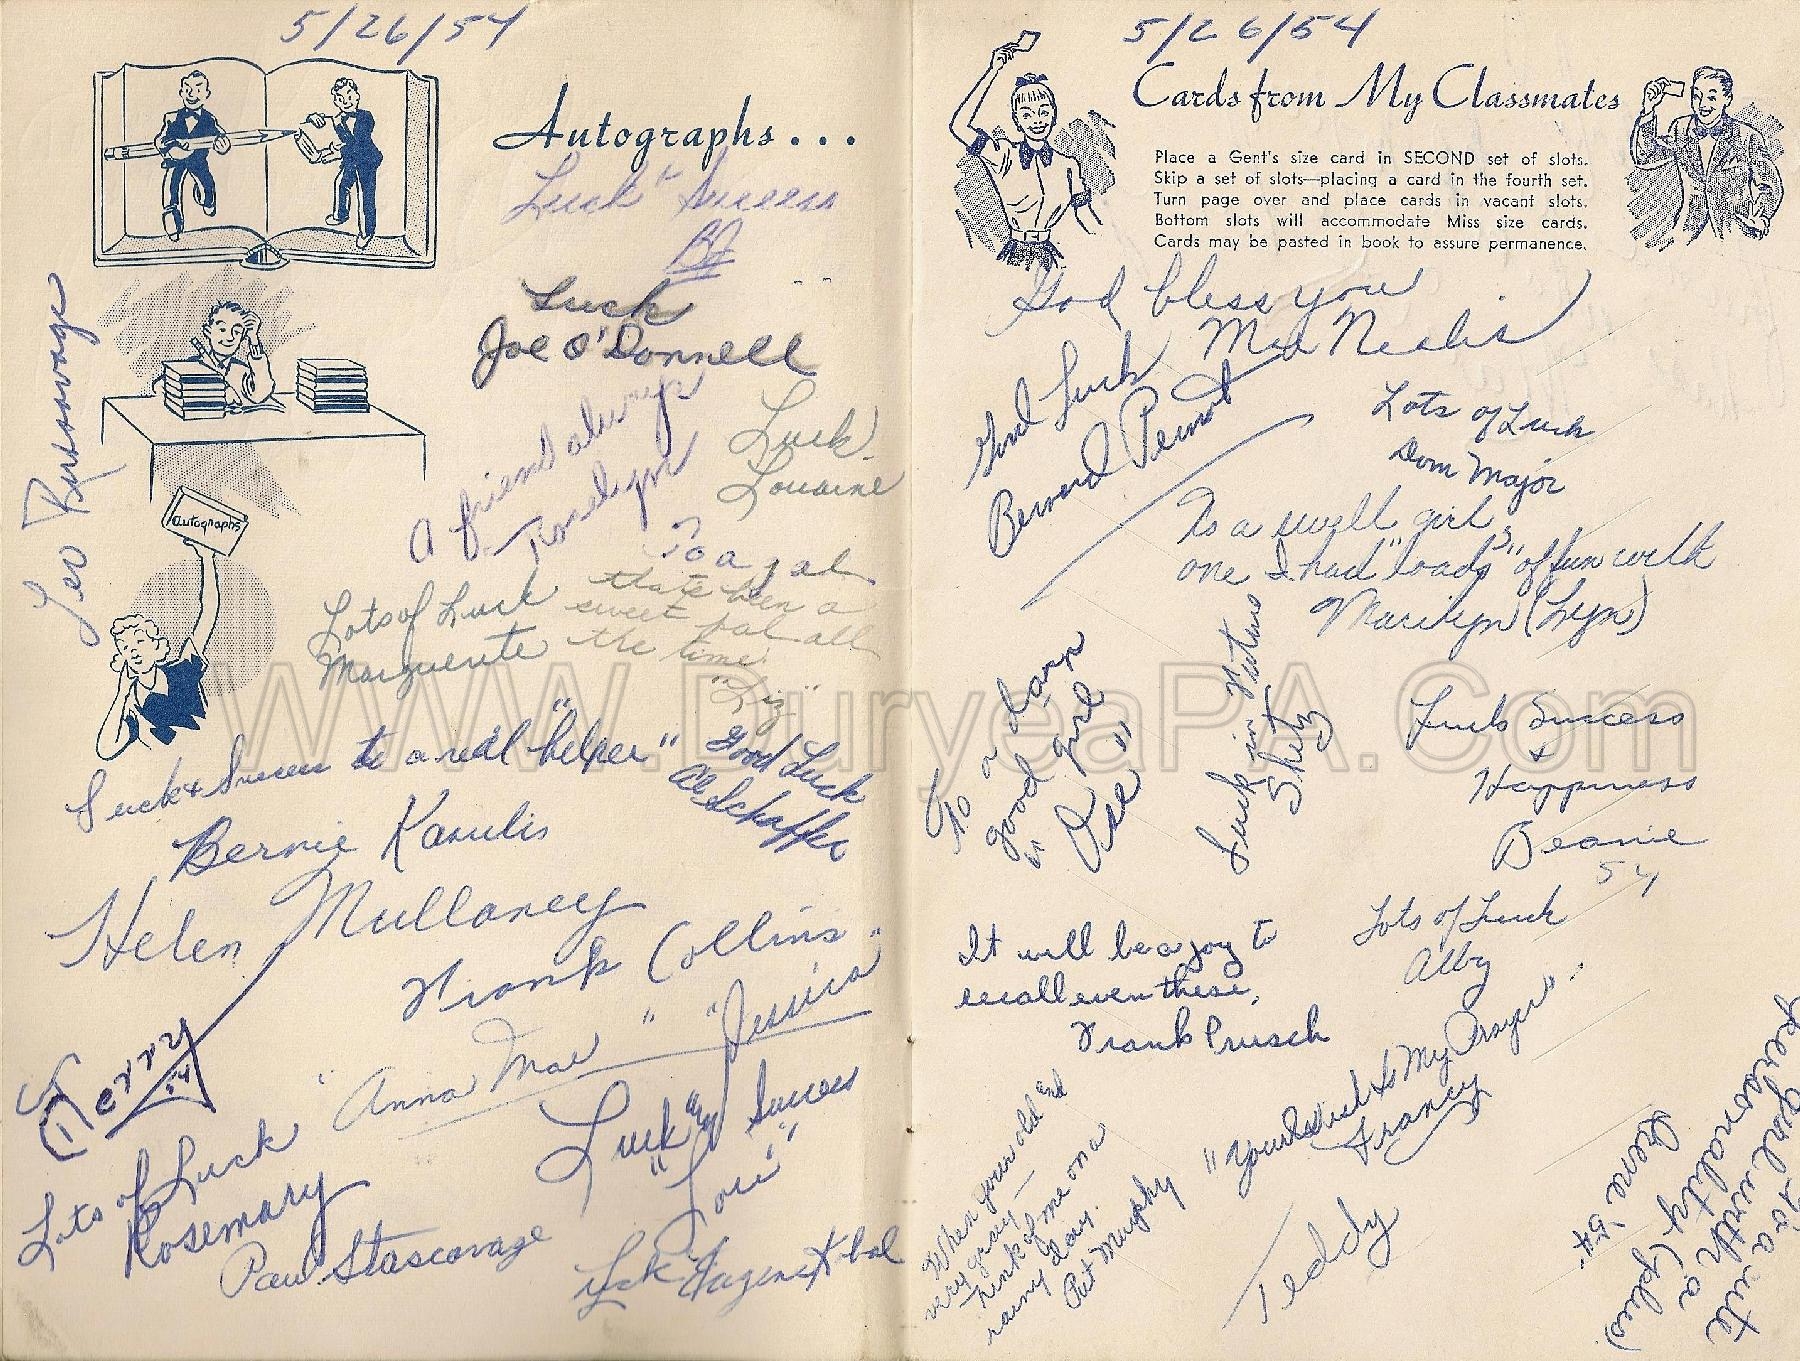 5/26/54
Autographs...
Luck + Success
BJ
Luck
Joe O'Donnell
A friend always
Luck
Louaine
Leo
autographs
To a gal
that's been a
sweet pal all
the time
"Liz"
Lots of Luck
Marguerite
Luck + Success to a real "helper"
Bernie Kanulis
Good Luck
Al Schaffer
Helen Mullaney
Frank Collins
"Anna Mae" "Jessica"
Jerry
54
Luck & Success
"Lori"
Lots of Luck
Rosemary
Paul Stascavage
Luck Eugene
5/26/54
Cards from My Classmates
Place a Gent's size card in SECOND set of slots.
Skip a set of slots—placing a card in the fourth set.
Turn page over and place cards in vacant slots.
Bottom slots will accommodate Miss size cards.
Cards may be pasted in book to assure permanence.
God bless you
Nealis
Good Luck
Bernard
Lots of Luck
Dom Major
To a swell girl,
one I had "loads" of fun with
Marilyn (Lyn)
To a darn
good girl
Luck in Future
Luck Success
+
Happiness
Beanie
54
Lots of Luck
Alby
It will be a joy to
recall even these,
Frank Prusch
"Your Luck Is My Prayers"
Francy
When your old and
very gray —
think of me on a
rainy day.
Pat Murphy
Teddy
To a cute
girl with a
personality (plus)
Irene '54
www.DuryeaPA.Com